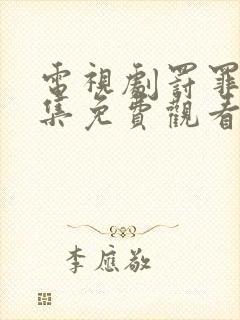 電視劇罰罪
集免費觀看
李應敬